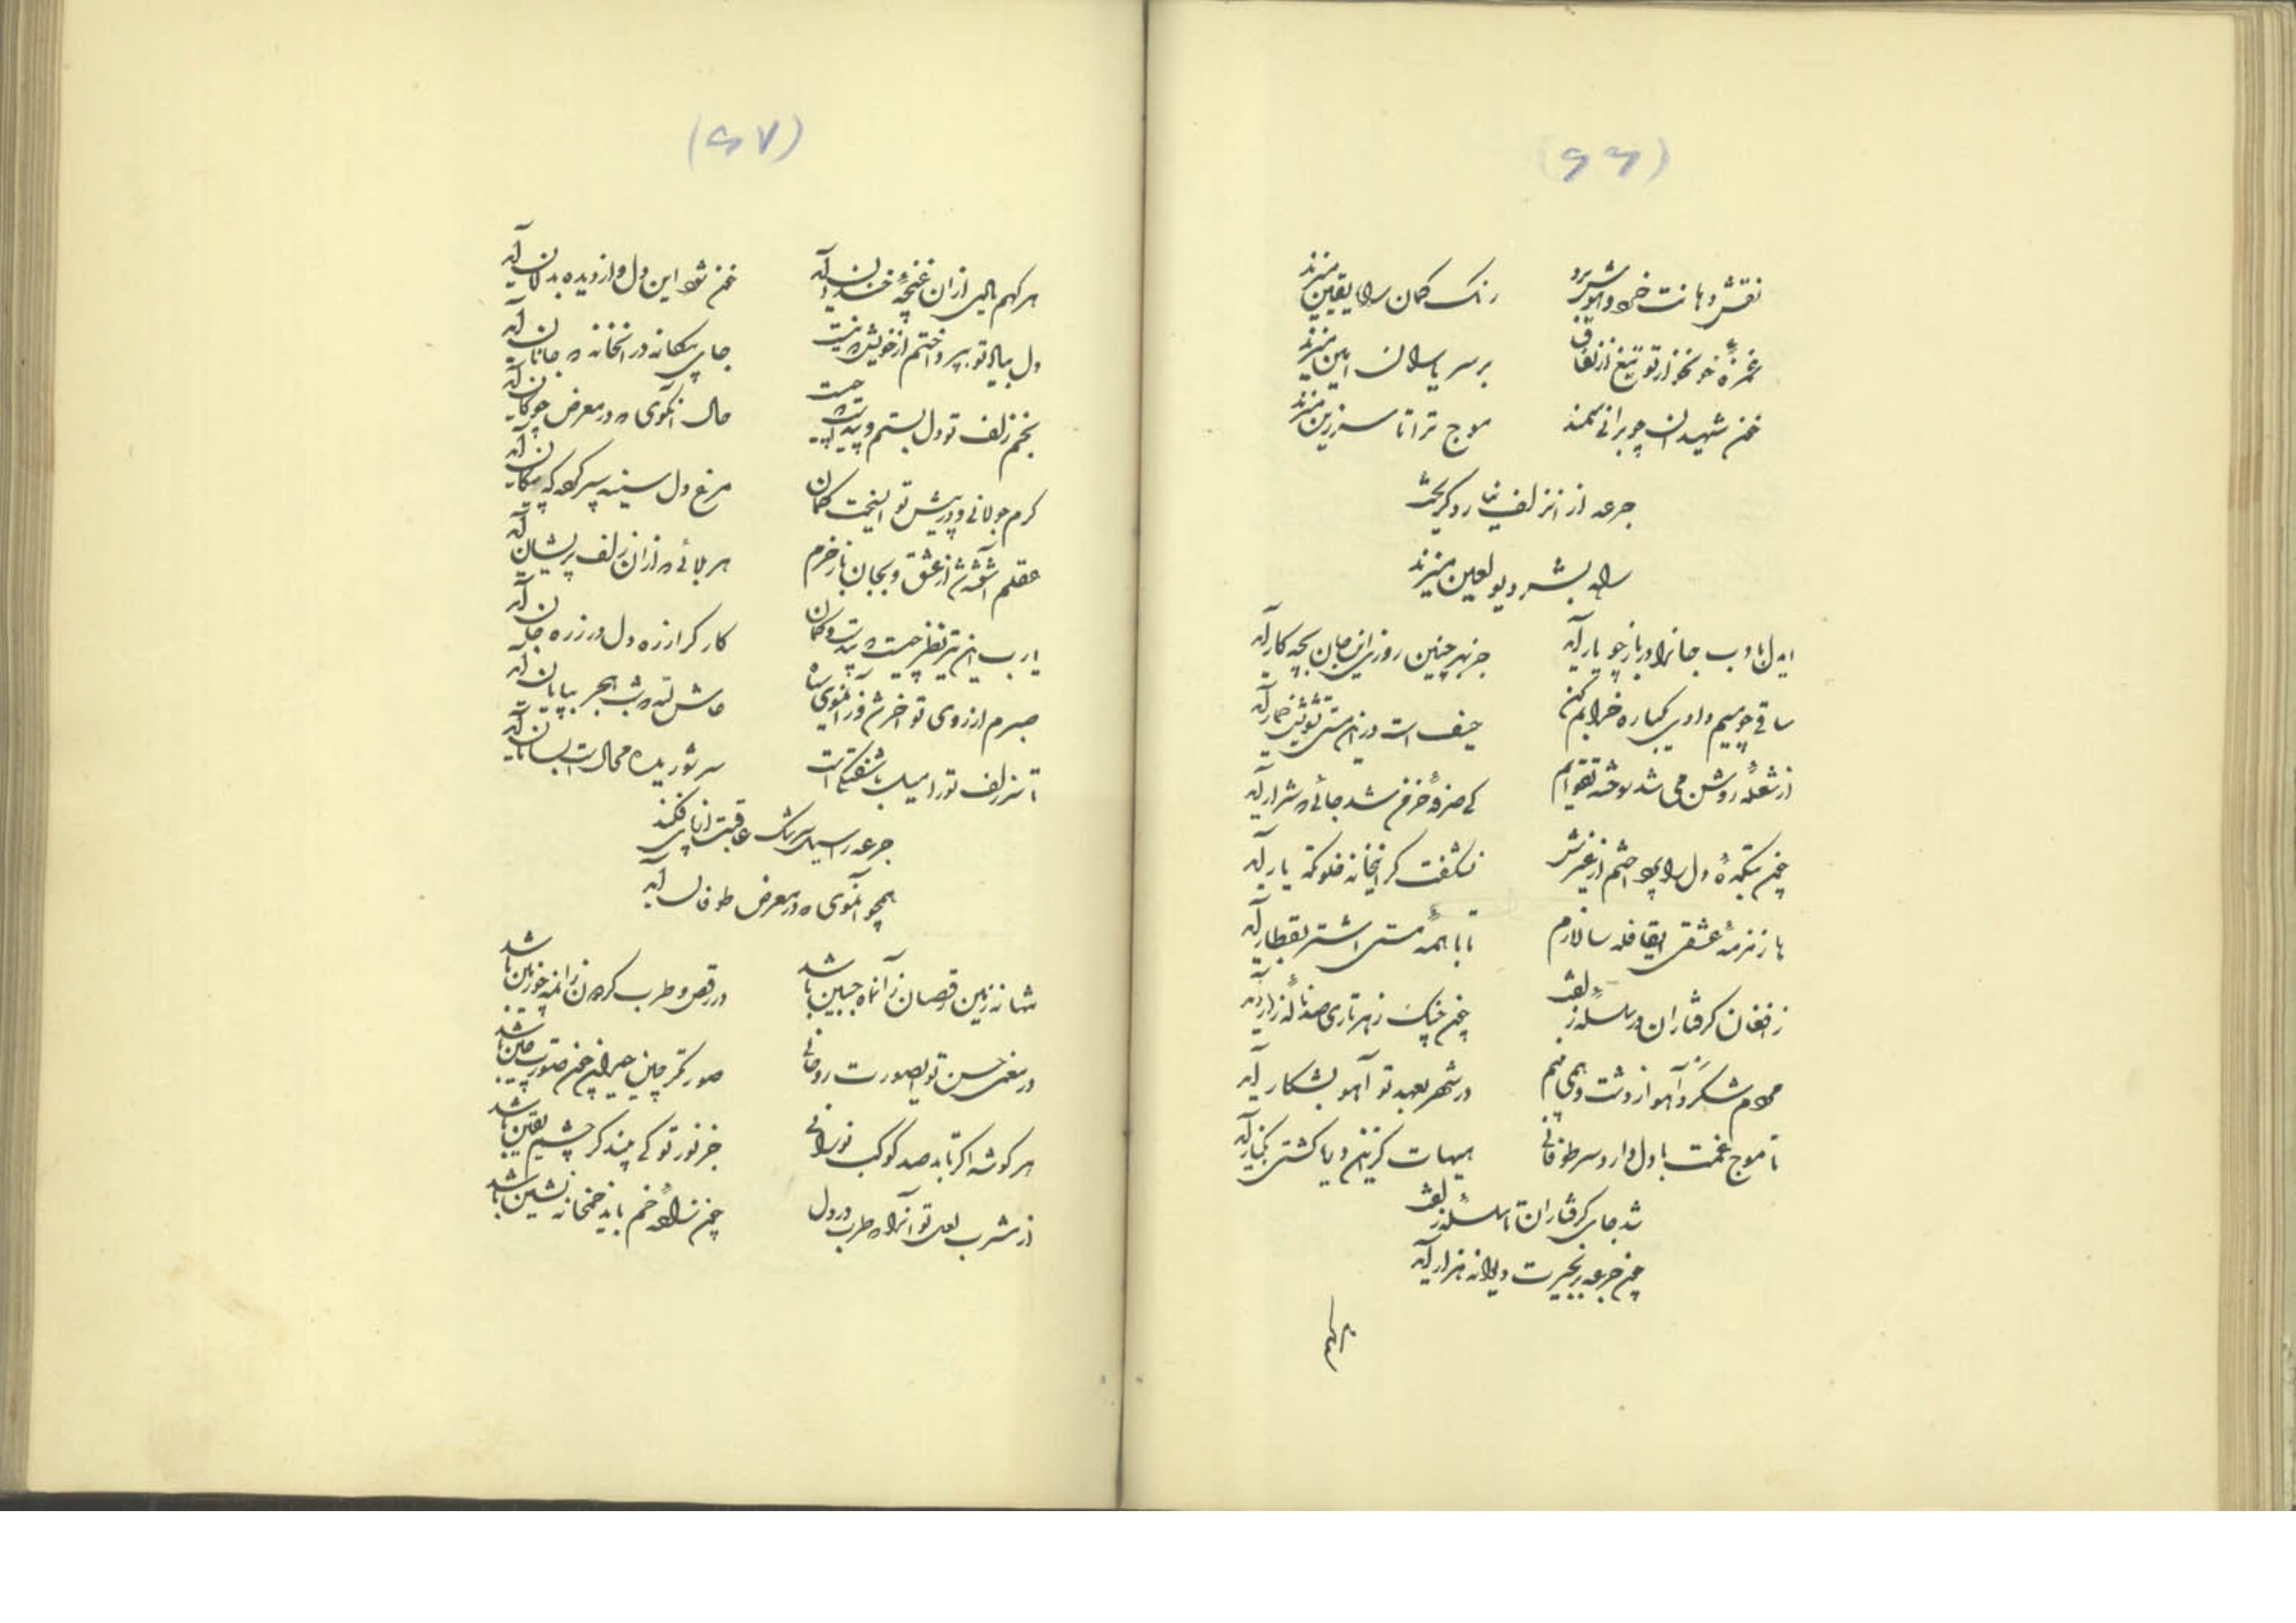 (۶۶)
نقش دهانت خرد
رنگ گمان را یقین میزند
غمزهٔ خونخوار تو تیغ از نفاق
بر سر یاران امین میزند
خون شهیدان چو برانی سمند
موج ترا تا سر زین میزند
جرعه از آن زلف
راه بشر دیو لعین میزند
ایدل بادب جانرا در باز چو یار آید
جز بهر چنین روزی این جان بچه کار آید
ساقی چو میم دادی یکباره خرابم کن
حیف است درین مستی تشویش خمار آید
از شعلهٔ روشن می شد سوخته تقوایم
کی صرفهٔ خرمن شد جائی که شرار آید
چون بتکدهٔ دل را پرداختم از غیرش
بشگفت کز آنخانه خلوتگه یار آید
با زمزمهٔ عشقی ایقافله سالارم
تا با همه مستی اشتر بقطار آید
ز افغان گرفتاران در سلسلهٔ زلفت
چون چنگ ز هر تاری صد نالهٔ زار آید
مردم شکرد آهو از دشت و همی بینم
در شهر بعهد تو آهو بشکار آید
تا موج غمت با دل دارد سر طوفانی
هیهات کزین دریا کشتی بکنار آید
شد جای گرفتاران تا سلسلهٔ زلفت
چون جرعه بزنجیرت دیوانه هزار آید
هر کهم
(۶۷)
هر کهم یادی از آن غنچهٔ خندان آید
خون شود این دل و از دیده بدامان آید
دل بیاد تو بپرداختم از خویش که نیست
جای بیگانه در آنخانه که جانان آید
بخم زلف تو دل بستم و پیداست که چیست
حال آنگوی که در معرض چوگان آید
گرم جولانی و در پیش تو انداخت کمان
مرغ دل سینه سپر کرده که پیکان آید
عقلم آشفته شد از عشق و بجان باز خرم
هر بلائی که از آن زلف پریشان آید
یارب این تیر نظر چیست که بیدست و کمان
کارگر از زره دل در زره جان آید
صبرم از روی تو آخر شد و زآنموی سیاه
حاش لله که شب هجر بپایان آید
تا سر زلف تو را میل باشفتگی است
سر شوریده محال است بسامان آید
جرعه را سیل سرشک عاقبت از پای فکند
همچو آنگوی که در معرض طوفان آید
شاها نه زمین رقصان ز آنماه جبین باشد
در رقص و طرب گردون زانمه چو زمین باشد
در معنی حسن تو ایصورت روحانی
صورتگر چین حیران چون صورت چین باشد
هر گوشه اگر تابد صد کوکب نورانی
جز نور تو کی بیند گر چشم یقین باشد
از مشرب لعل تو آنرا که طرب در دل
چون نشأهٔ خم باید خمخانه نشین باشد